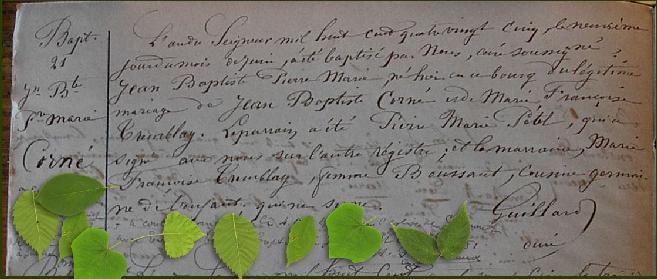 Bapt.
21
Jn Bte
Pre Marie
Corné
L'an du Seigneur mil huit cent quatre vingt cinq, le neuvième
jour du mois de juin, a été baptisé par Nous, curé soussigné,
Jean Baptiste Pierre Marie né hier en ce bourg du légitime
mariage de Jean Baptiste Corné et de Marie Françoise
Tremblay. Le parrain a été Pierre Marie qui a
signé avec nous sur l'autre registre, et la marraine, Marie
Françoise Tremblay, femme Boussaut, cousine germai-
ne de l'enfant qui ne signe.
Guillard
curé